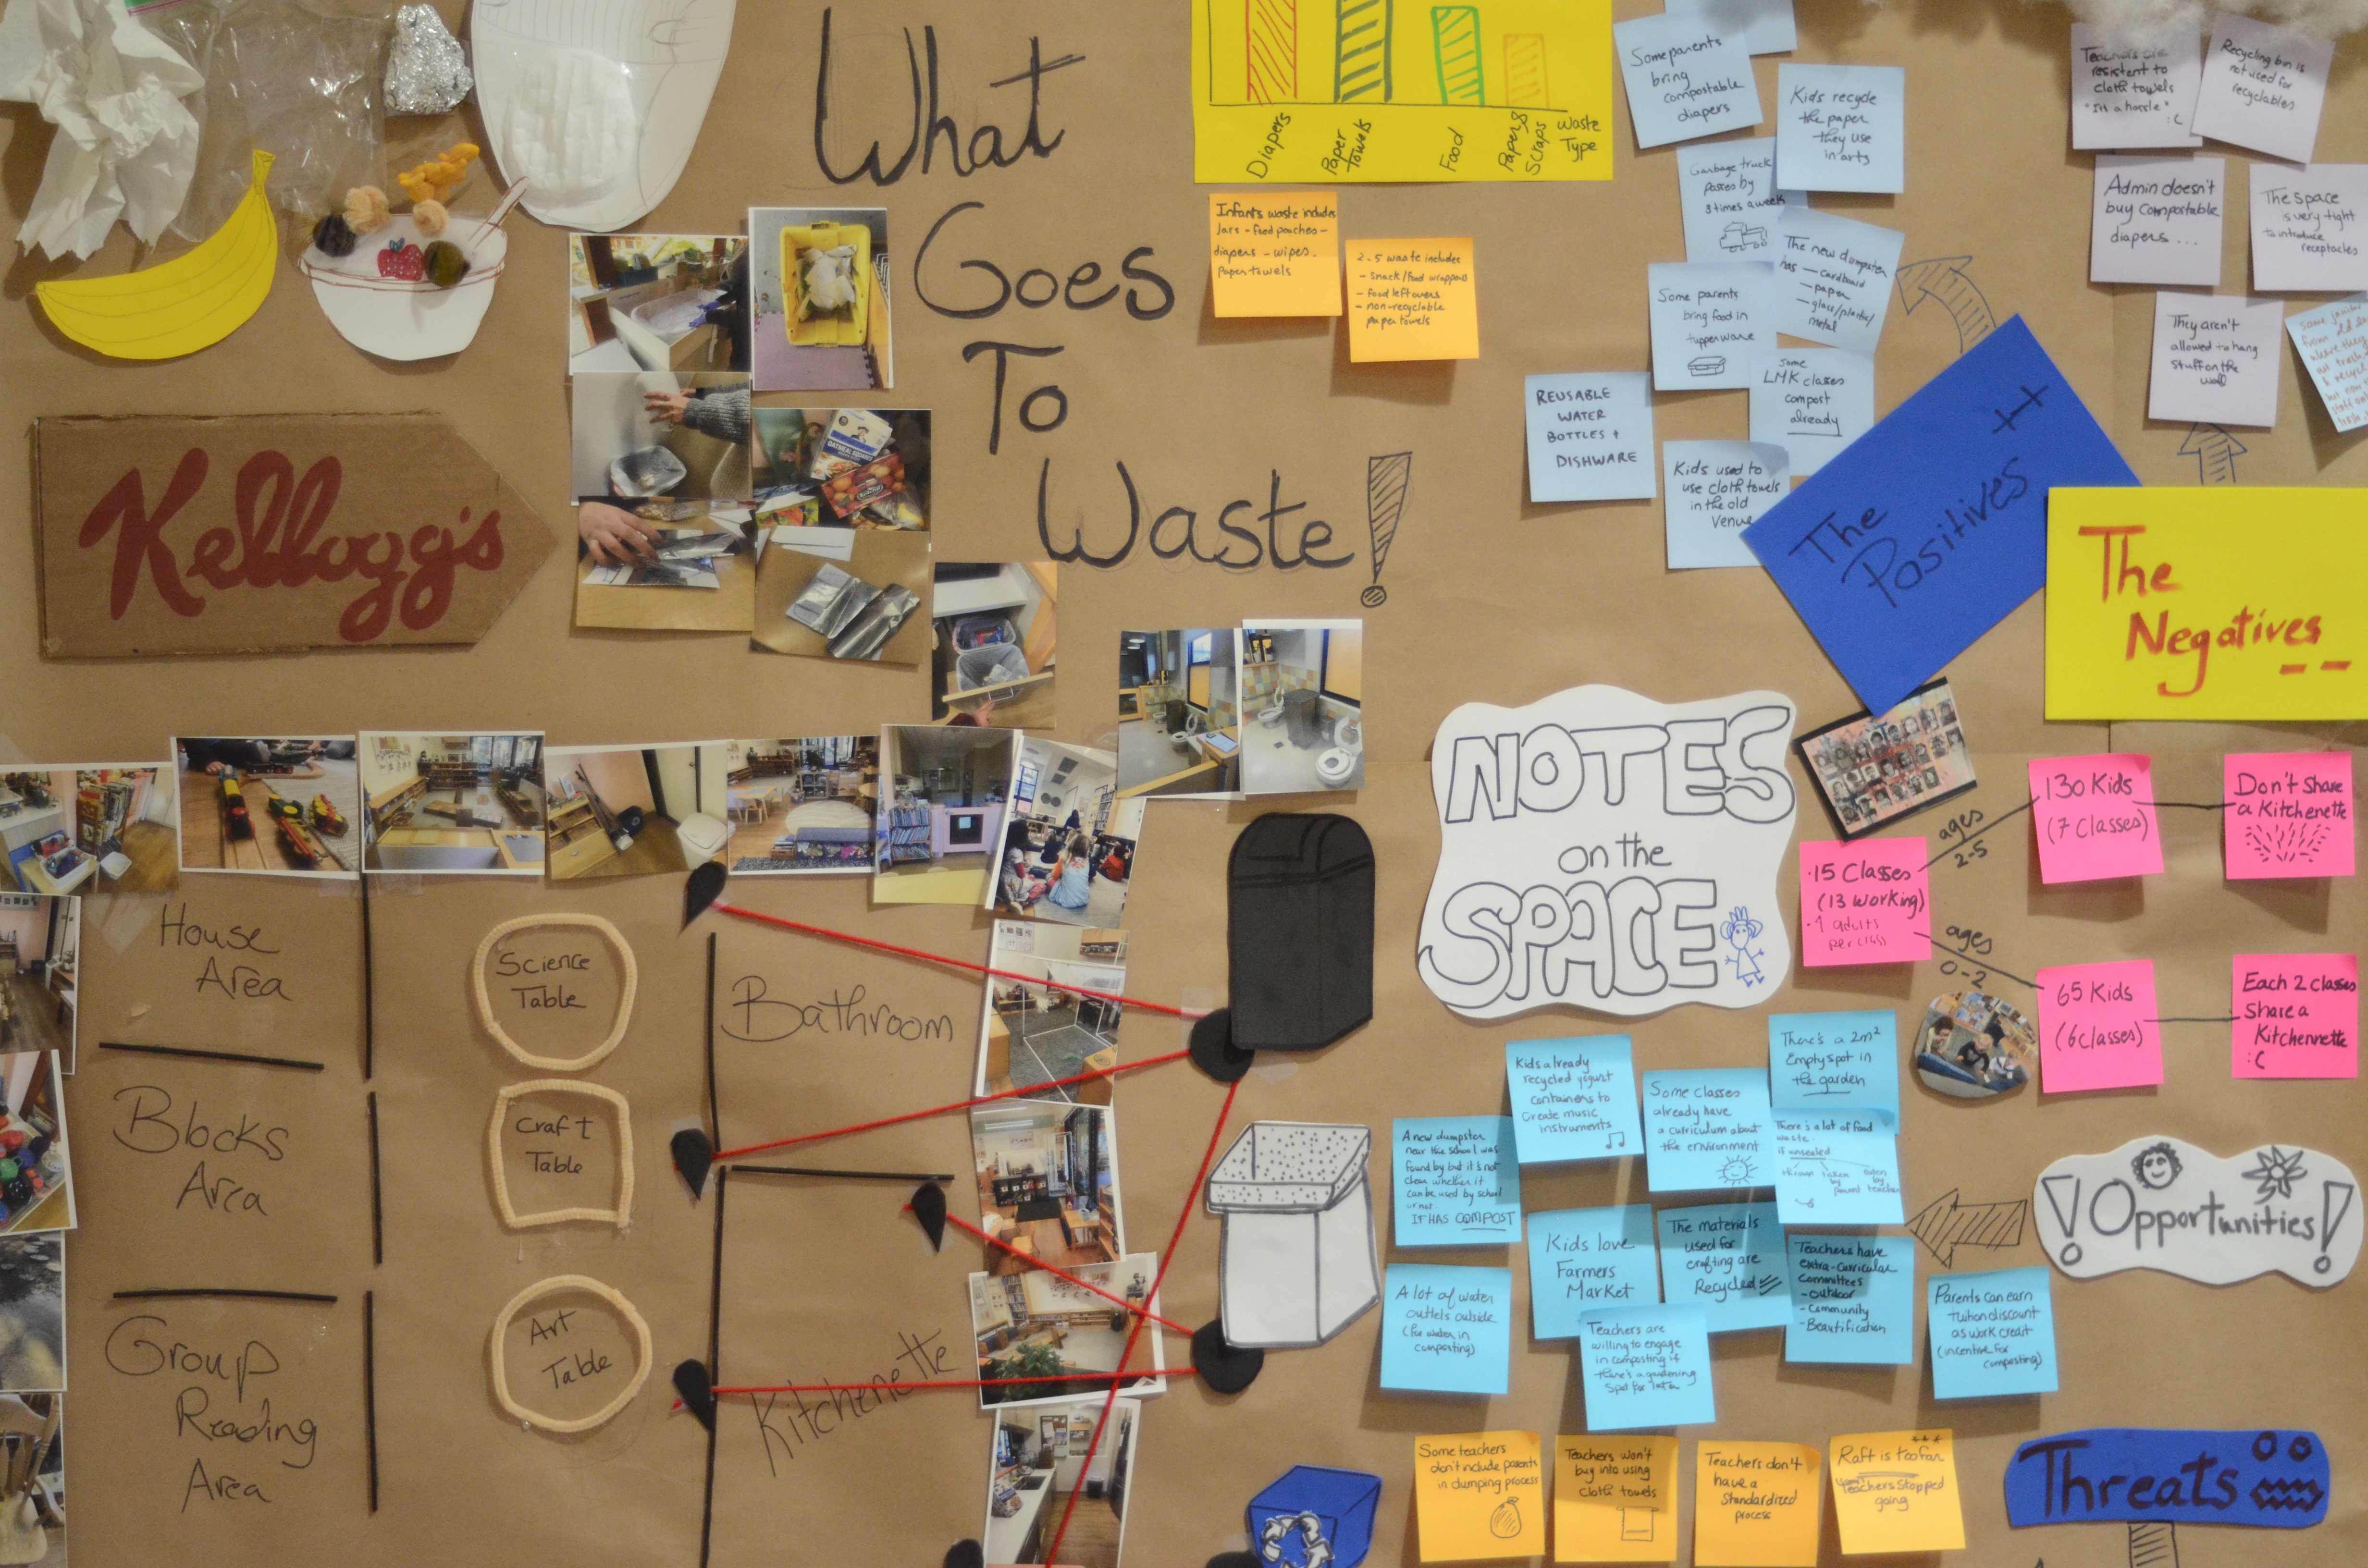 What
Goes
To
Waste!
Diapers
Paper
Towels
Food
Papers
Scraps
Waste
Type
Infants waste includes
Jars - food pouches -
diapers - wipes -
paper towels
2-5 waste includes
- snack/food wrappers
- food leftovers
- non-recyclable
paper towels
Kellogg's
OATMEAL SQUARES
Some parents
bring
compostable
diapers
Kids recycle
the paper
they use
in arts
Garbage truck
passes by
3 times a week
The new dumpster
has - cardboard
- paper
- glass/plastic/
metal
Some parents
bring food in
tupperware
Some
LMK classes
compost
already
REUSABLE
WATER
BOTTLES +
DISHWARE
Kids used to
use cloth towels
in the old
Venue
The
Positives
++
Teachers are
resistent to
cloth towels
"Its a hassle"
:(
Recycling bin is
not used for
recyclables
Admin doesn't
buy compostable
diapers ...
The space
is very tight
to introduce
receptacles
They aren't
allowed to hang
stuff on the
wall
some
from
where they
trash
& recycle
but now
trash
The
Negatives
--
NOTES
on the
SPACE
·15 Classes
(13 working)
·4 adults
per class
ages
2-5
130 Kids
(7 Classes)
Don't Share
a Kitchenette
ages
0-2
65 Kids
(6 classes)
Each 2 classes
Share a
Kitchennette
:(
House
Area
Blocks
Area
Group
Reading
Area
Science
Table
Craft
Table
Art
Table
Bathroom
Kitchenette
Kids already
recycled yogurt
containers to
Create music
instruments
Some classes
already have
a curriculum about
the environment
There's a 2m²
Empty spot in
the garden
A new dumpster
near the school was
found by but it's not
clear whether it
can be used by school
or not.
IT HAS COMPOST
There's a lot of food
waste.
if unsealed
thrown taken by parent eaten by teacher
Kids love
Farmers
Market
The materials
used for
crafting are
Recycled
Teachers have
extra-curricular
Committees
- Outdoor
- Community
- Beautification
A lot of water
outlets outside
(for water in
composting)
Teachers are
willing to engage
in composting if
there's a gardening
spot for later
Parents can earn
tuition discount
as work credit
(incentive for
composting)
!Opportunities!
Some teachers
don't include parents
in dumping process
Teachers won't
buy into using
cloth towels
Teachers don't
have a
standardized
process
Raft is too far
Teachers stopped
going
Threats